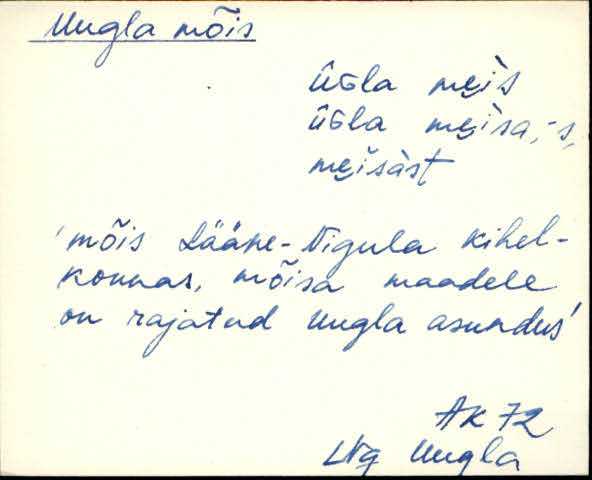 Uugla mõis
ūɢla męìs
ūɢla męìsa, -s,
męìsàst
'mõis Lääne-Nigula kihel-
konnas, mõisa maadele
on rajatud Uugla asundus'
AK 72
LNg Uugla